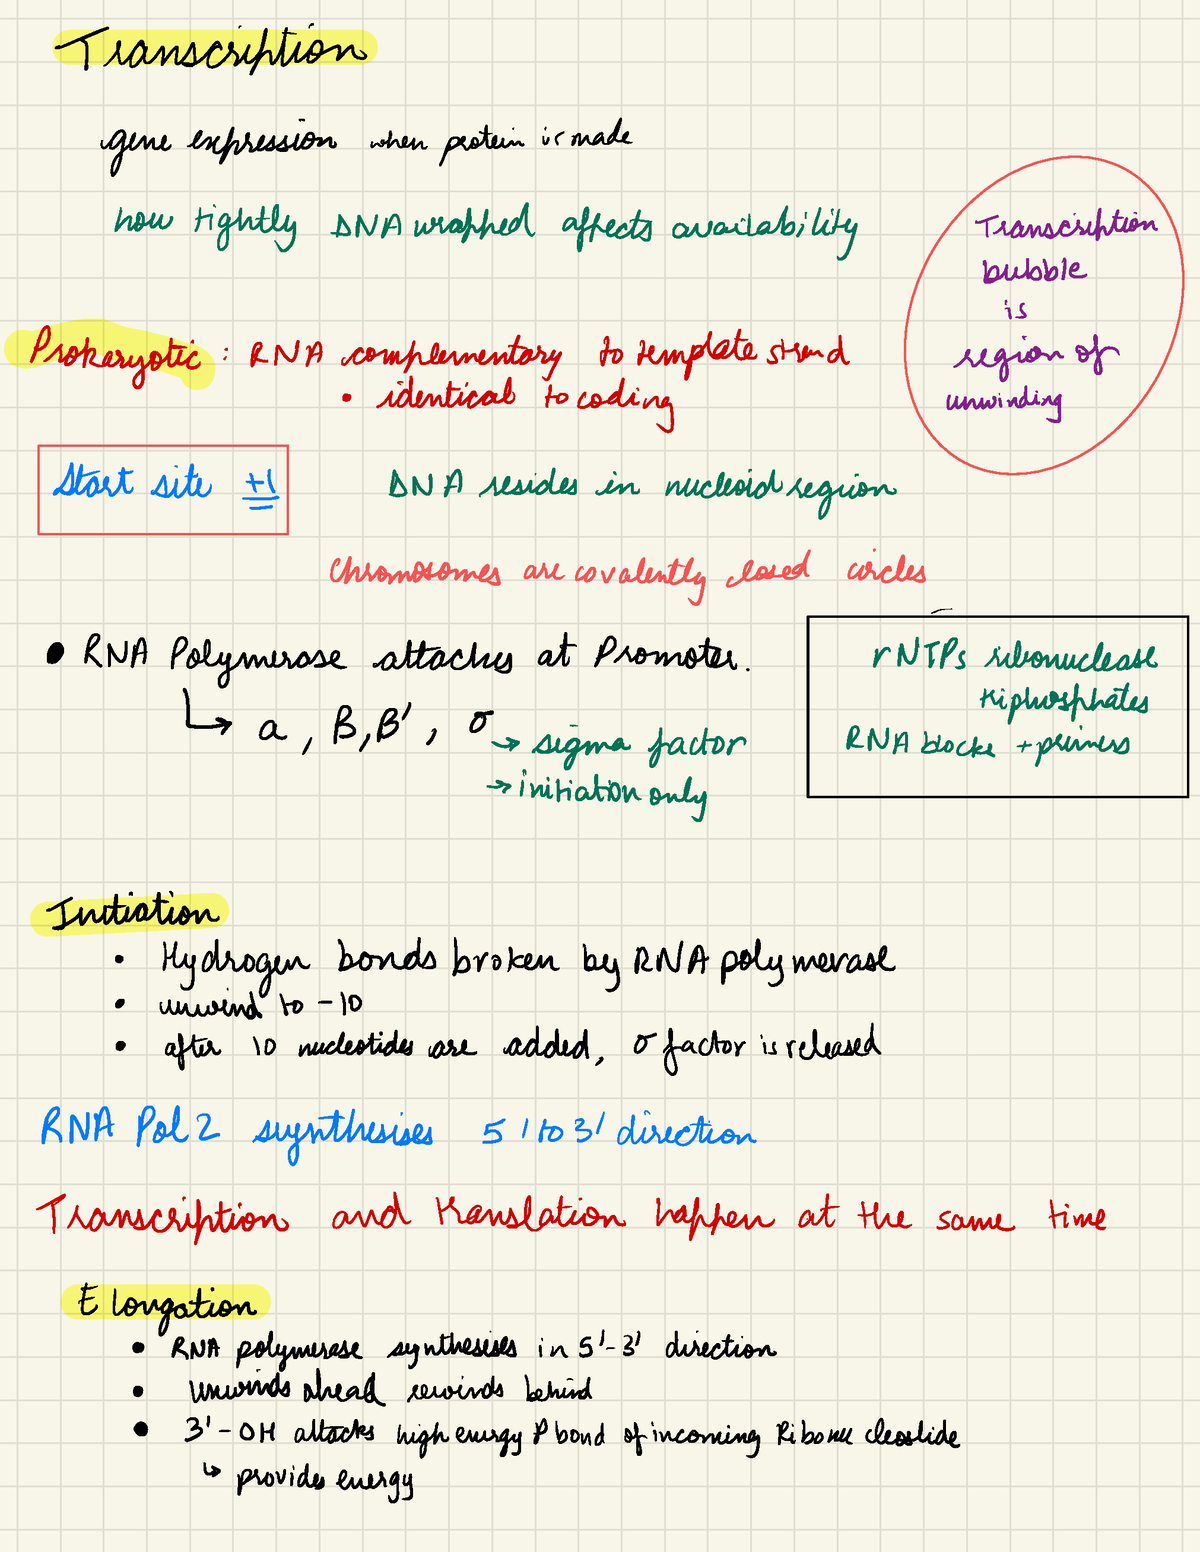 Transcription
gene expression when protein is made
how tightly DNA wrapped affects availability
Transcription
bubble
is
region of
unwinding
Prokaryotic : RNA complementary to template strand
• identical to coding
Start site +1
DNA resides in nucleoid region
Chromosomes are covalently closed circles
• RNA Polymerase attaches at Promoter.
↳ a , B, B' , σ → sigma factor
→ initiation only
rNTPs ribonuclease
triphosphates
RNA blocks + primers
Initiation
• Hydrogen bonds broken by RNA polymerase
• unwind to -10
• after 10 nucleotides are added, σ factor is released
RNA Pol 2 synthesises 5' to 3' direction
Transcription and translation happen at the same time
Elongation
• RNA polymerase synthesises in 5'-3' direction
• unwinds ahead rewinds behind
• 3'-OH attacks high energy P bond of incoming Ribonucleotide
↳ provides energy